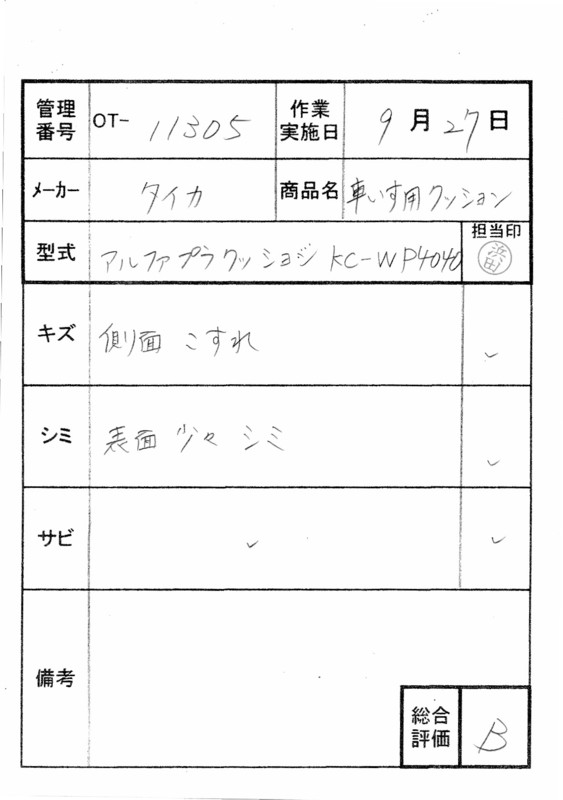 管理番号 OT- 11305 作業実施日 9月27日
メーカー タイカ 商品名 車いす用クッション
型式 アルファプラクッション KC-WP4040 担当印 浜田
キズ 側面 こすれ ✓
シミ 表面 少々 シミ ✓
サビ ✓ ✓
備考
総合評価 B